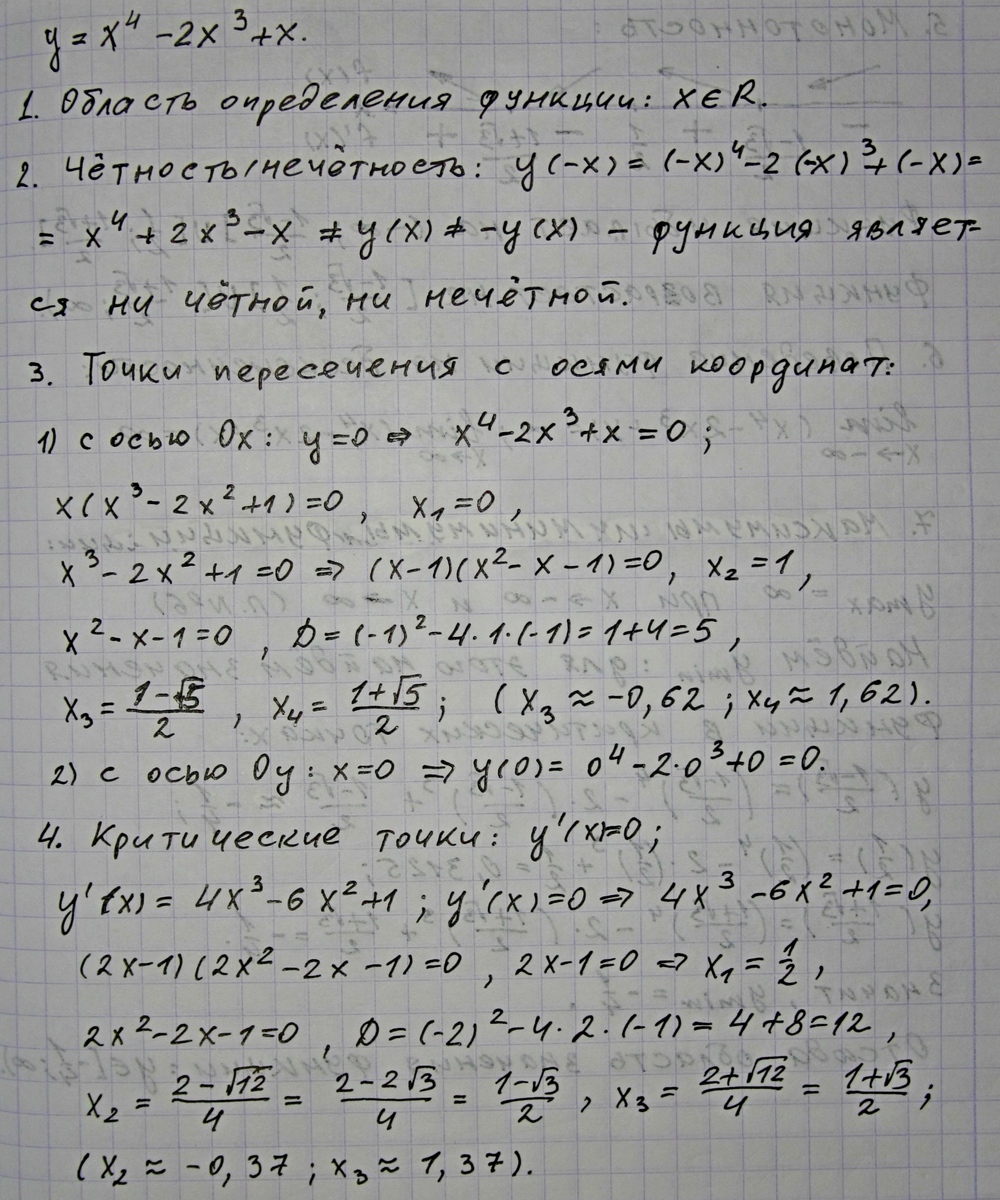 y = x⁴ - 2x³ + x.
1. Область определения функции: x ∈ R.
2. Чётность/нечётность: y(-x) = (-x)⁴ - 2(-x)³ + (-x) =
= x⁴ + 2x³ - x ≠ y(x) ≠ -y(x) - функция являет-
ся ни чётной, ни нечётной.
3. Точки пересечения с осями координат:
1) с осью Ox: y=0 ⇒ x⁴ - 2x³ + x = 0;
x(x³ - 2x² + 1) = 0, x₁ = 0,
x³ - 2x² + 1 = 0 ⇒ (x-1)(x² - x - 1) = 0, x₂ = 1,
x² - x - 1 = 0, D = (-1)² - 4·1·(-1) = 1+4 = 5,
x₃ = (1-√5)/2, x₄ = (1+√5)/2; (x₃ ≈ -0,62; x₄ ≈ 1,62).
2) с осью Oy: x=0 ⇒ y(0) = 0⁴ - 2·0³ + 0 = 0.
4. Критические точки: y'(x)=0;
y'(x) = 4x³ - 6x² + 1; y'(x) = 0 ⇒ 4x³ - 6x² + 1 = 0,
(2x-1)(2x² - 2x - 1) = 0, 2x-1=0 ⇒ x₁ = 1/2,
2x² - 2x - 1 = 0, D = (-2)² - 4·2·(-1) = 4+8 = 12,
x₂ = (2-√12)/4 = (2-2√3)/4 = (1-√3)/2, x₃ = (2+√12)/4 = (1+√3)/2;
(x₂ ≈ -0,37; x₃ ≈ 1,37).